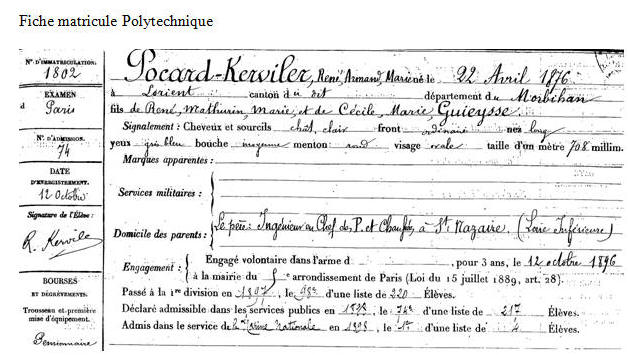 Fiche matricule Polytechnique
N° D'IMMATRICULATION:
1802
EXAMEN
d Paris
N° D'ADMISSION.
74
DATE
D'ENREGISTREMENT.
12 Octobre
Signature de l'Élève:
R. Kervile
BOURSES
ET DÉGRÈVEMENTS.
Trousseau et première
mise d'équipement.
Pensionnaire
Pocard-Kerviler, René, Armand, Marie né le 22 Avril 1876
à Lorient canton du dit département du Morbihan
fils de René, Mathurin, Marie, et de Cécile, Marie, Guieysse.
Signalement : Cheveux et sourcils chât. clair front ordinaire nez long
yeux gris bleu bouche moyenne menton rond visage ovale taille d'un mètre 708 millim.
Marques apparentes :
Services militaires :
Domicile des parents : Le père : Ingénieur en Chef des P. et Chaussées, à St Nazaire. (Loire Inférieure)
Engagement : Engagé volontaire dans l'arme d , pour 3 ans, le 12 octobre 1896
à la mairie du 5e arrondissement de Paris (Loi du 15 juillet 1889, art. 28).
Passé à la 1re division en 1897, le 98e d'une liste de 220 Élèves.
Déclaré admissible dans les services publics en 1898, le 74e d'une liste de 217 Élèves.
Admis dans le service de la Marine Nationale en 1898, le 1er d'une liste de 4 Élèves.